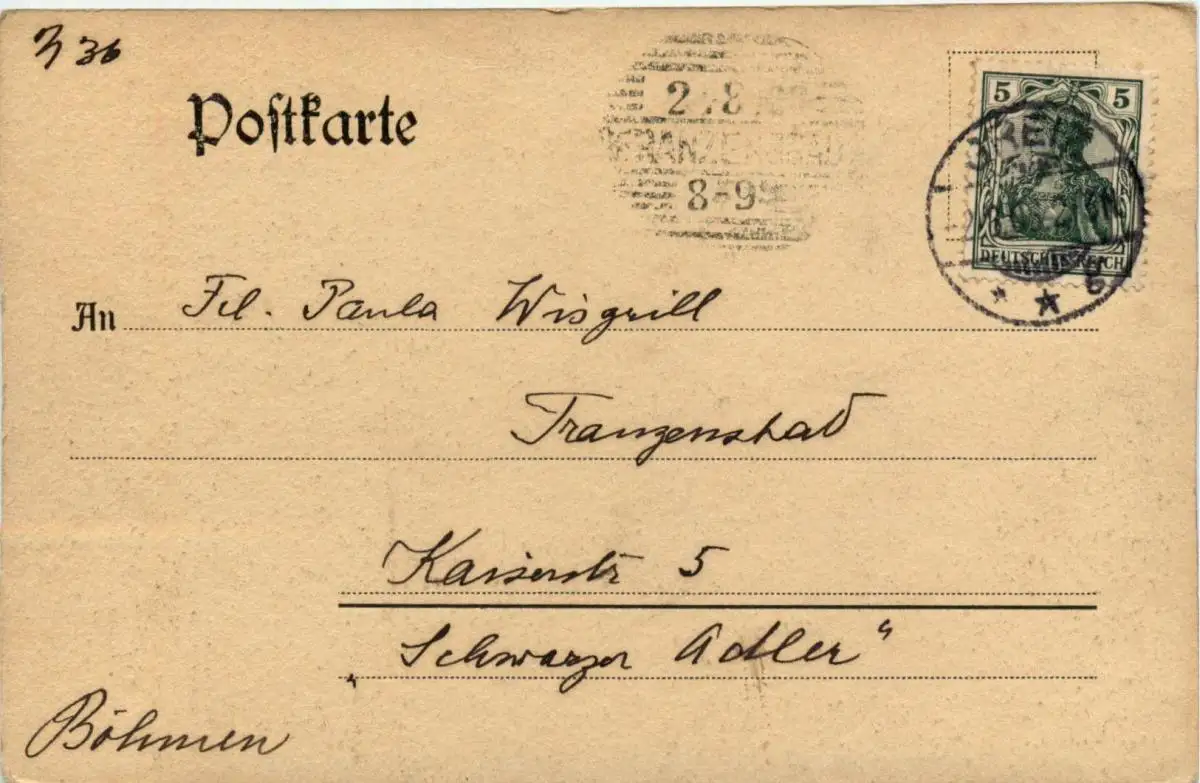 36
Postkarte
2 .8
FRANZENSBAD
8-9
5 5
DEUTSCHES REICH
6
An Frl. Paula Wisgrill
Franzensbad
Kaiserstr 5
„Schwarzer Adler“
Böhmen